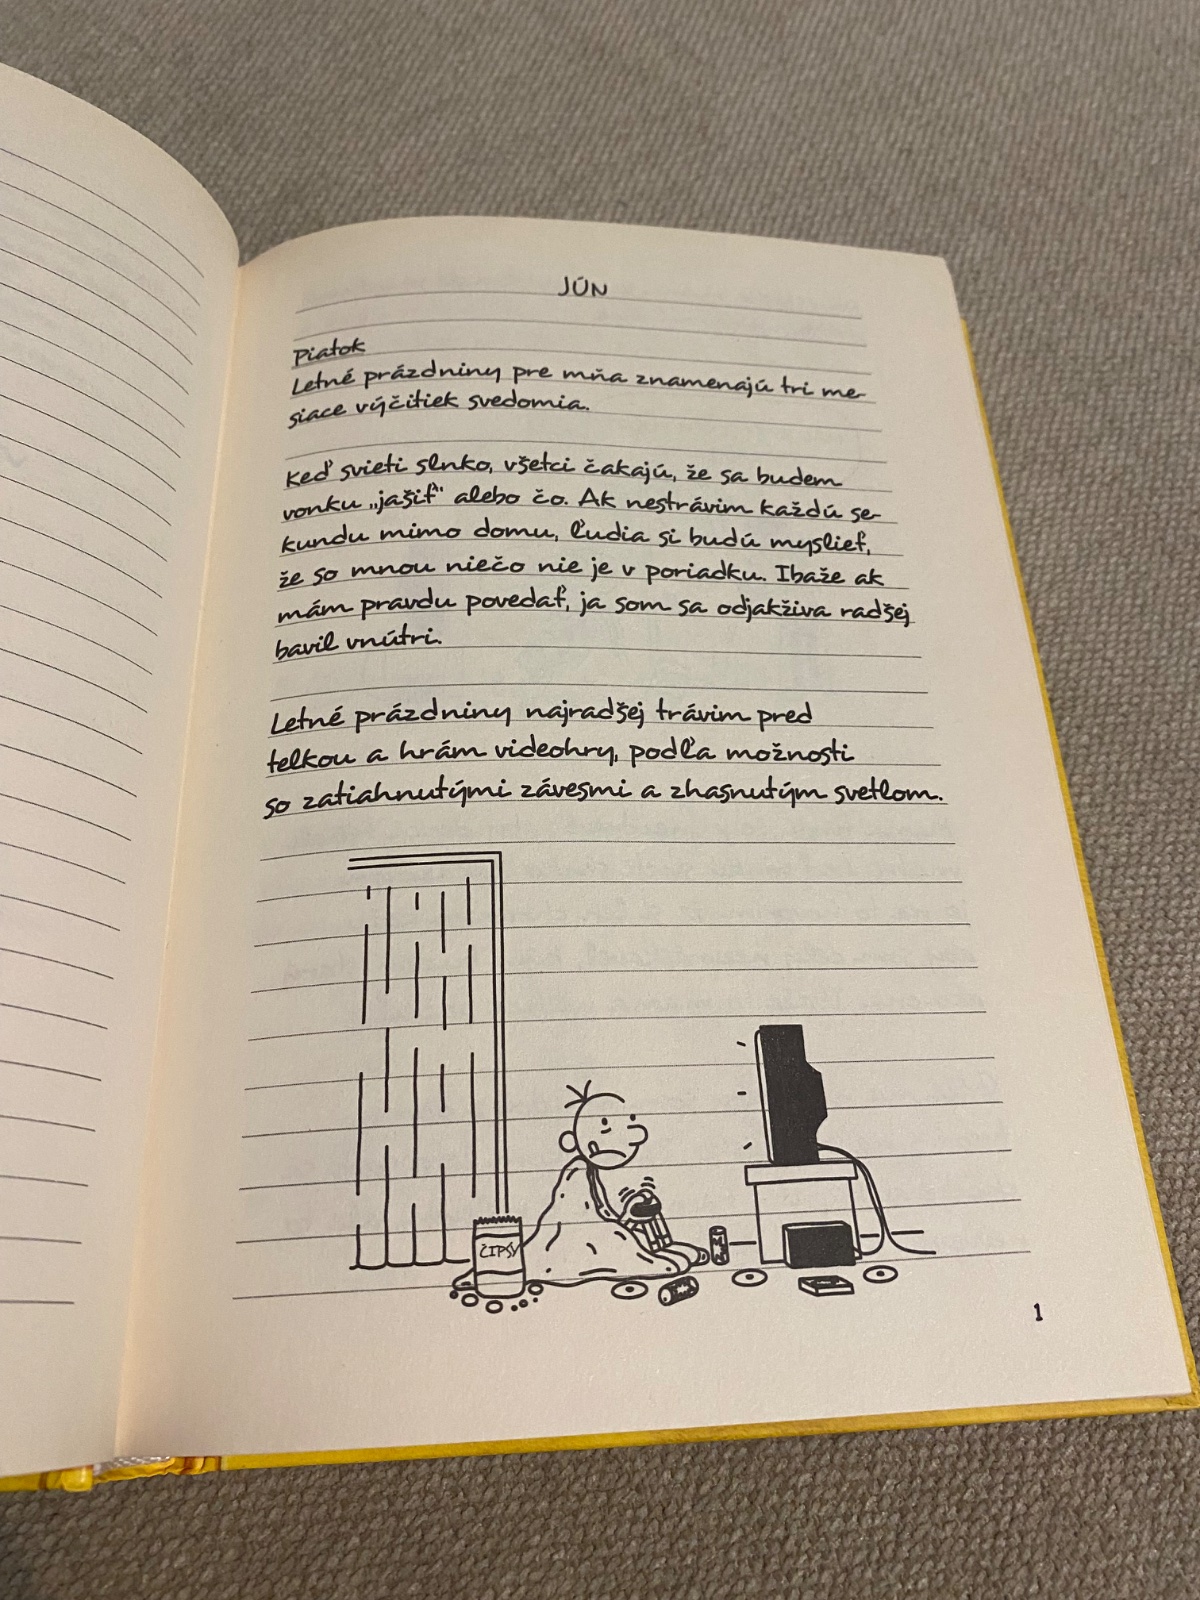 JÚN
Piatok
Letné prázdniny pre mňa znamenajú tri me-
siace výčitiek svedomia.
Keď svieti slnko, všetci čakajú, že sa budem
vonku „jašiť" alebo čo. Ak nestrávim každú se-
kundu mimo domu, ľudia si budú myslieť,
že so mnou niečo nie je v poriadku. Ibaže ak
mám pravdu povedať, ja som sa odjakživa radšej
bavil vnútri.
Letné prázdniny najradšej trávim pred
telkou a hrám videohry, podľa možnosti
so zatiahnutými závesmi a zhasnutým svetlom.
ČIPSY
1